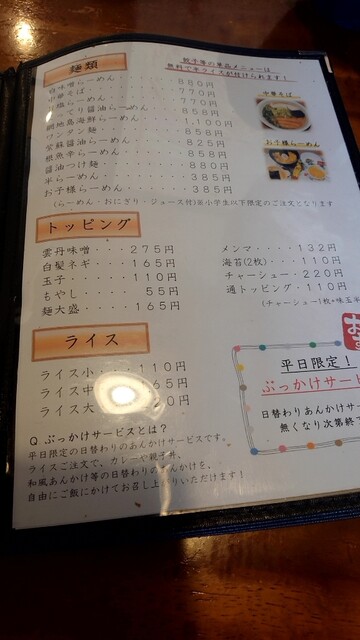 餃子等の単品メニューは
無料で半ライスが付けられます！
麺類
白味噌らーめん 880円
中華そば 770円
らーめん 770円
こってり醤油らーめん 858円
網地島海鮮らーめん 1,100円
ワンタン麺 858円
紫蘇醤油らーめん 825円
根魚辛らーめん 858円
醤油つけ麺 880円
半らーめん 385円
お子様らーめん 385円
(らーめん・おにぎり・ジュース付)※小学生以下限定のご注文となります
中華そば
お子様らーめん
トッピング
雲丹味噌・・・・275円
白髪ネギ・・・・165円
玉子・・・・・110円
もやし・・・・・55円
麺大盛・・・・・165円
メンマ・・・・・132円
海苔(2枚)・・・・110円
チャーシュー・・・220円
追トッピング・・・110円
(チャーシュー1枚+味玉半
ライス
ライス小・・・110円
ライス中 165円
ライス大 0円
平日限定！
ぶっかけサー
日替わりあんかけサー
無くなり次第終
Q ぶっかけサービスとは？
平日限定の日替わりのあんかけサービスです。
ライスご注文で、カレーや親子丼、
和風あんかけ等の日替わりのあんかけを、
自由にご飯にかけてお召し上がりいただけます！